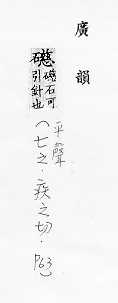 廣韻
礠
礠石可
引針也
平聲
(七之·疾之切·P63)